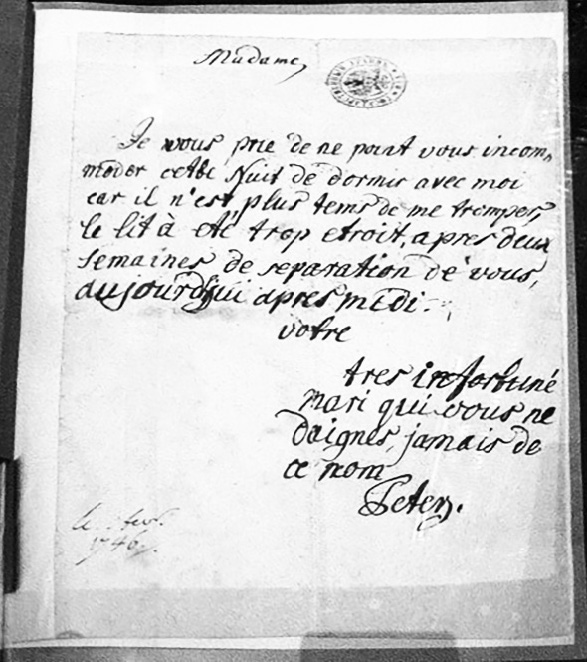 Madame,
Je vous prie de ne point vous incom,
moder cette Nuit de dormir avec moi
car il n'est plus tems de me tremper,
le lit à eté trop etroit, apres deux
semaines de separation de vous,
aujourd'hui apres midi.
votre
tres infortuné
mari qui vous ne
daignes, jamais de
ce nom
Peter.
1746.